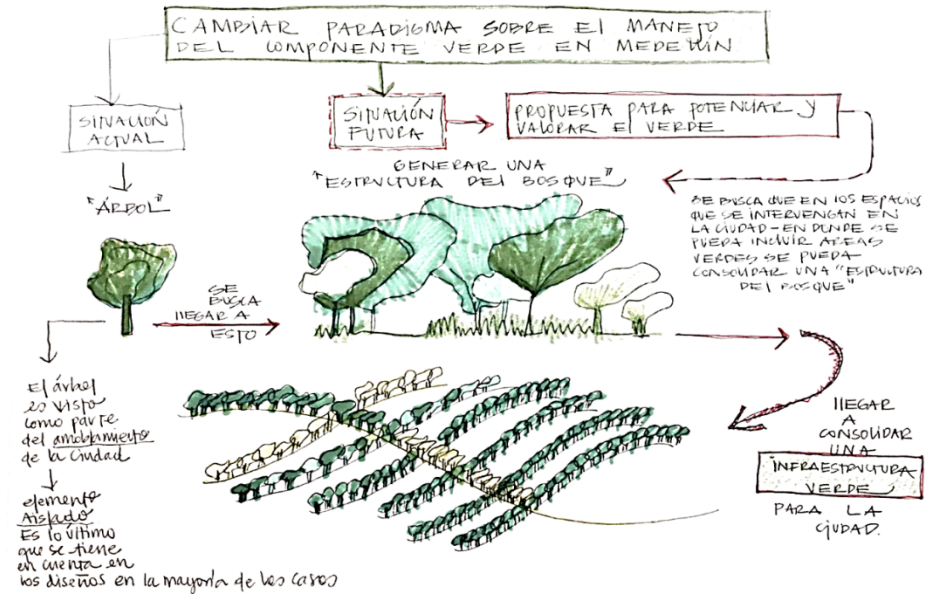 CAMBIAR PARADIGMA SOBRE EL MANEJO
DEL COMPONENTE VERDE EN MEDELLÍN
SITUACIÓN
ACTUAL
SITUACIÓN
FUTURA
PROPUESTA PARA POTENCIAR Y
VALORAR EL VERDE
"ÁRBOL"
GENERAR UNA
"ESTRUCTURA DEL BOSQUE"
SE BUSCA QUE EN LOS ESPACIOS
QUE SE INTERVENGAN EN
LA CIUDAD-EN DONDE SE
PUEDA INCLUIR AREAS
VERDES SE PUEDA
CONSOLIDAR UNA "ESTRUCTURA
DEL BOSQUE"
SE
BUSCA
LLEGAR A
ESTO
El árbol
es visto
como parte
del amoblamiento
de la Ciudad
elemento
Aislado
Es lo último
que se tiene
en cuenta en
los diseños en la mayoría de los casos
LLEGAR
A
CONSOLIDAR
UNA
INFRAESTRUCTURA
VERDE
PARA LA
CIUDAD.